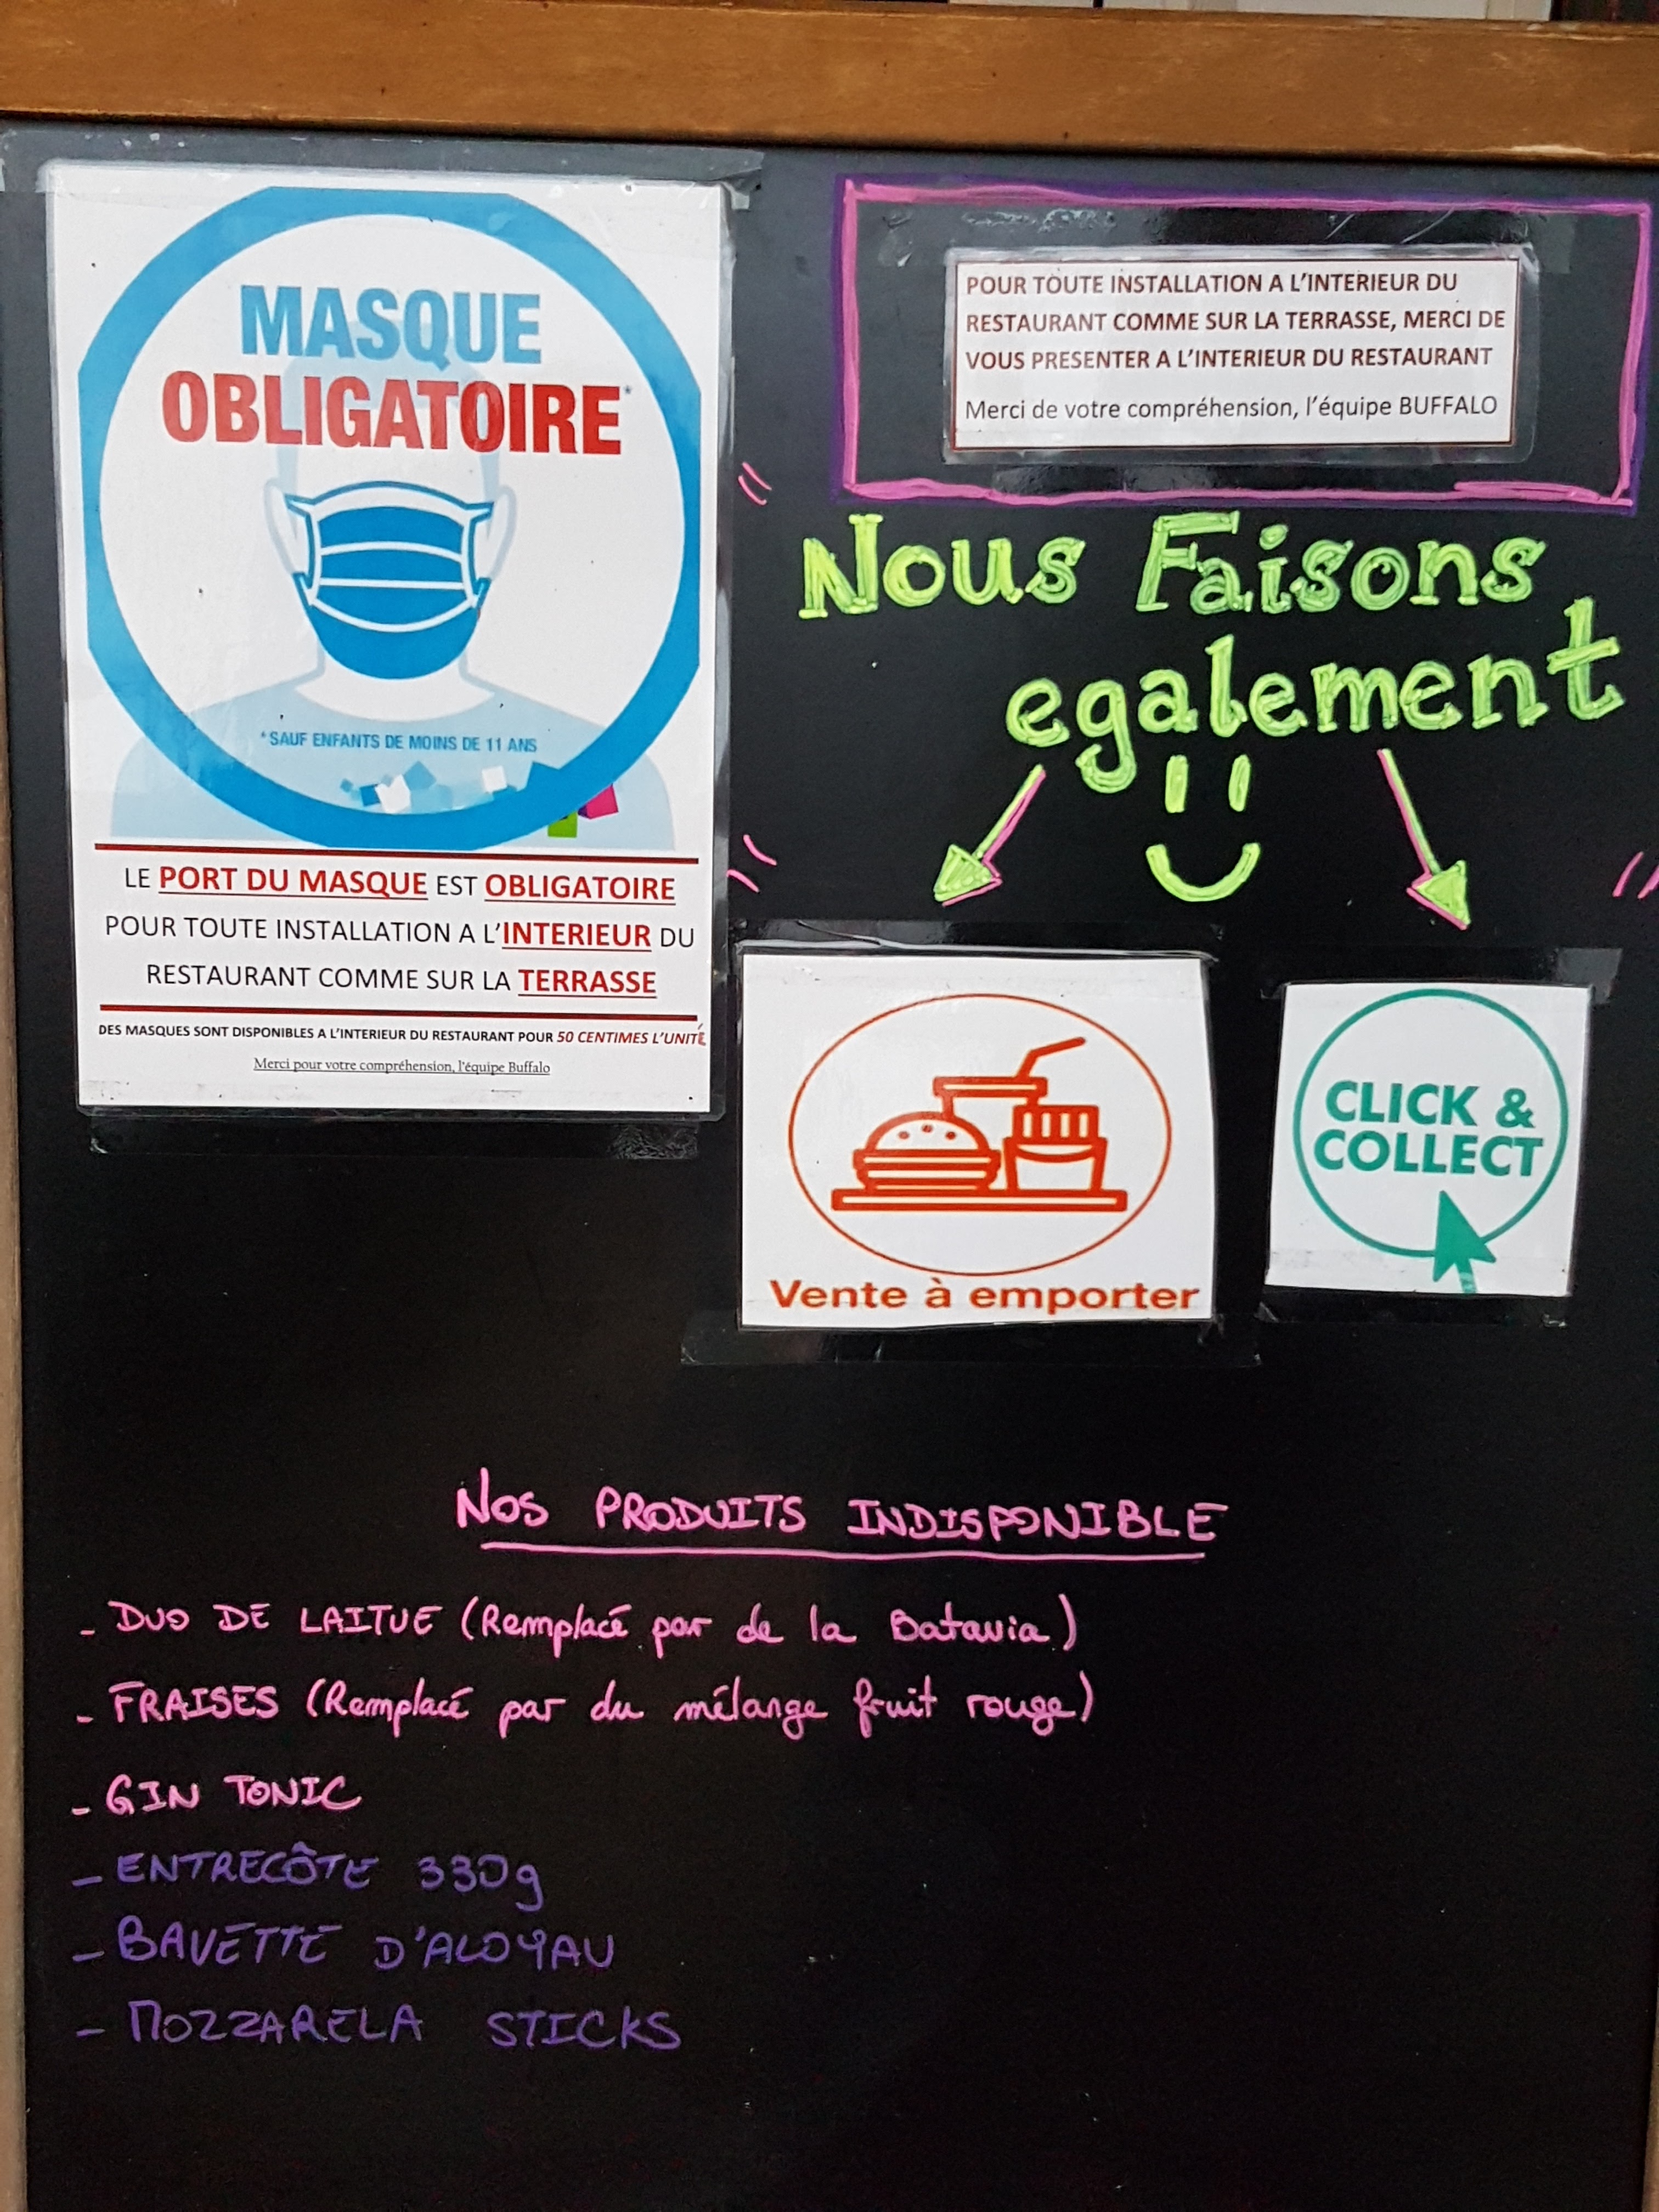 MASQUE
OBLIGATOIRE*
* SAUF ENFANTS DE MOINS DE 11 ANS
LE PORT DU MASQUE EST OBLIGATOIRE
POUR TOUTE INSTALLATION A L'INTERIEUR DU
RESTAURANT COMME SUR LA TERRASSE
DES MASQUES SONT DISPONIBLES A L'INTERIEUR DU RESTAURANT POUR 50 CENTIMES L'UNITÉ
Merci pour votre compréhension, l'équipe Buffalo
POUR TOUTE INSTALLATION A L'INTERIEUR DU
RESTAURANT COMME SUR LA TERRASSE, MERCI DE
VOUS PRESENTER A L'INTERIEUR DU RESTAURANT
Merci de votre compréhension, l'équipe BUFFALO
Nous Faisons
egalement
Vente à emporter
CLICK &
COLLECT
NOS PRODUITS INDISPONIBLE
- DUO DE LAITUE (Remplacé par de la Batavia)
- FRAISES (Remplacé par du mélange fruit rouge)
- GIN TONIC
- ENTRECÔTE 330g
- BAVETTE D'ALOYAU
- MOZZARELA STICKS